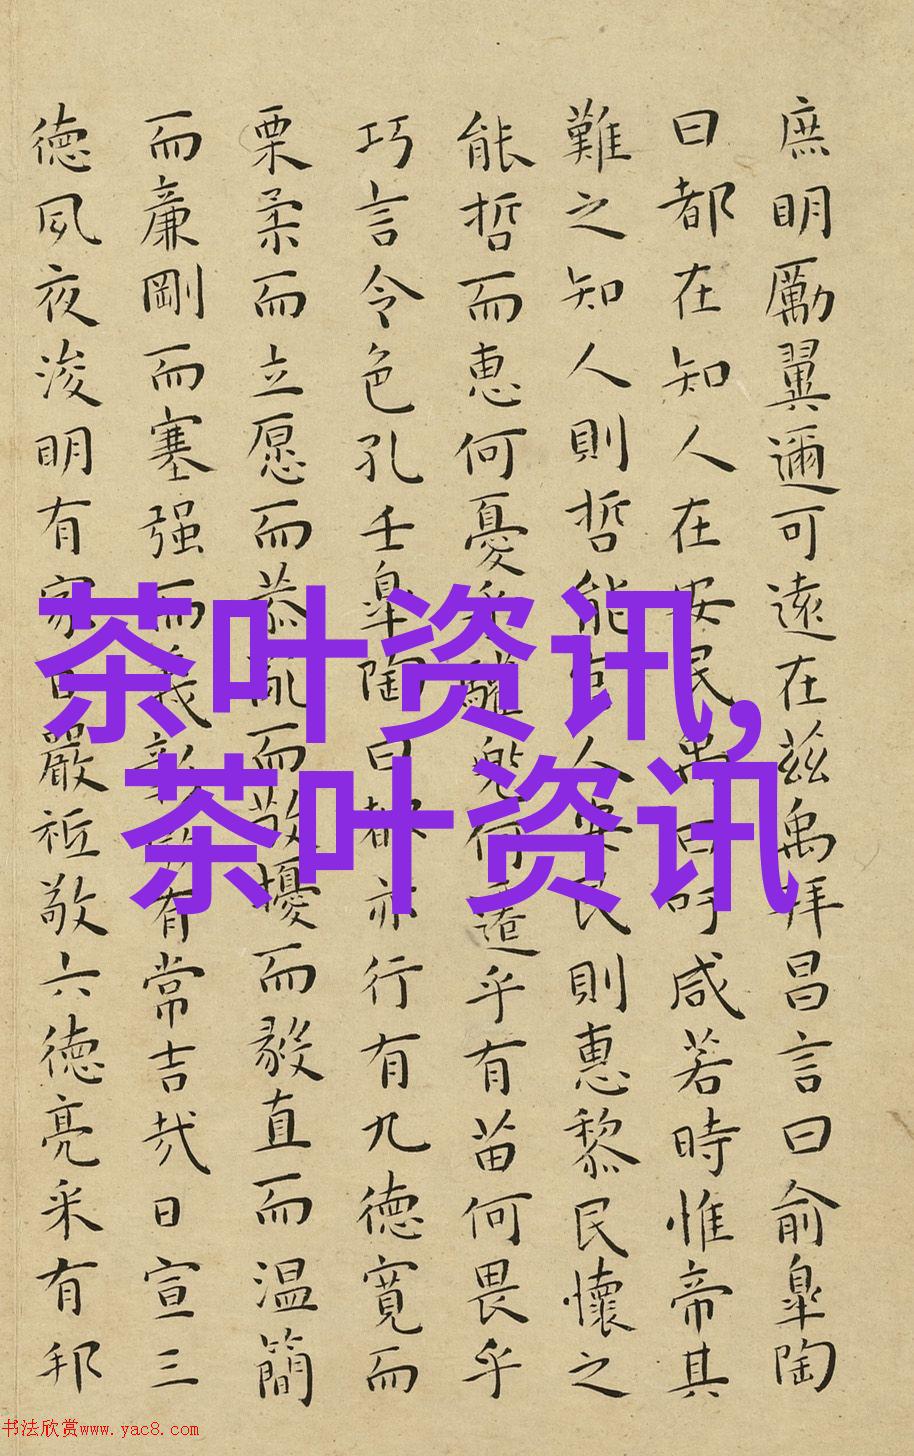 庶明厲翼邇可遠在茲禹拜昌言曰俞皐陶
曰都在知人在安民禹曰吁咸若時惟帝其
難之知人則哲能官人安民則惠黎民懷之
能哲而惠何憂乎驩兜何遷乎有苗何畏乎
巧言令色孔壬皐陶曰都亦行有九德寬而
栗柔而立愿而恭亂而敬擾而毅直而温簡
而廉剛而塞强而義彰厥有常吉哉日宣三
德夙夜浚明有家日嚴祗敬六德亮采有邦
茶叶资讯,
茶叶资讯
书法欣赏www.yac8.com